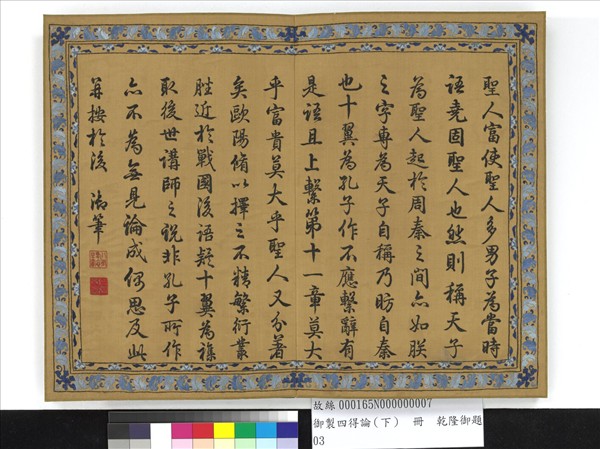 聖人富使聖人多男子為當時
語堯固聖人也然則稱天子
為聖人起於周秦之間亦如朕
之字專為天子自稱乃昉自秦
也十翼為孔子作不應繫辭有
是語且上繫第十一章莫大
乎富貴莫大乎聖人又分著
矣歐陽脩以擇之不精繁衍叢
脞近於戰國後語疑十翼為雜
取後世講師之說非孔子所作
亦不為無見論成偶思及此
并按於後 御筆
故絲 000165N000000007
御製四得論(下) 冊 乾隆御題
03